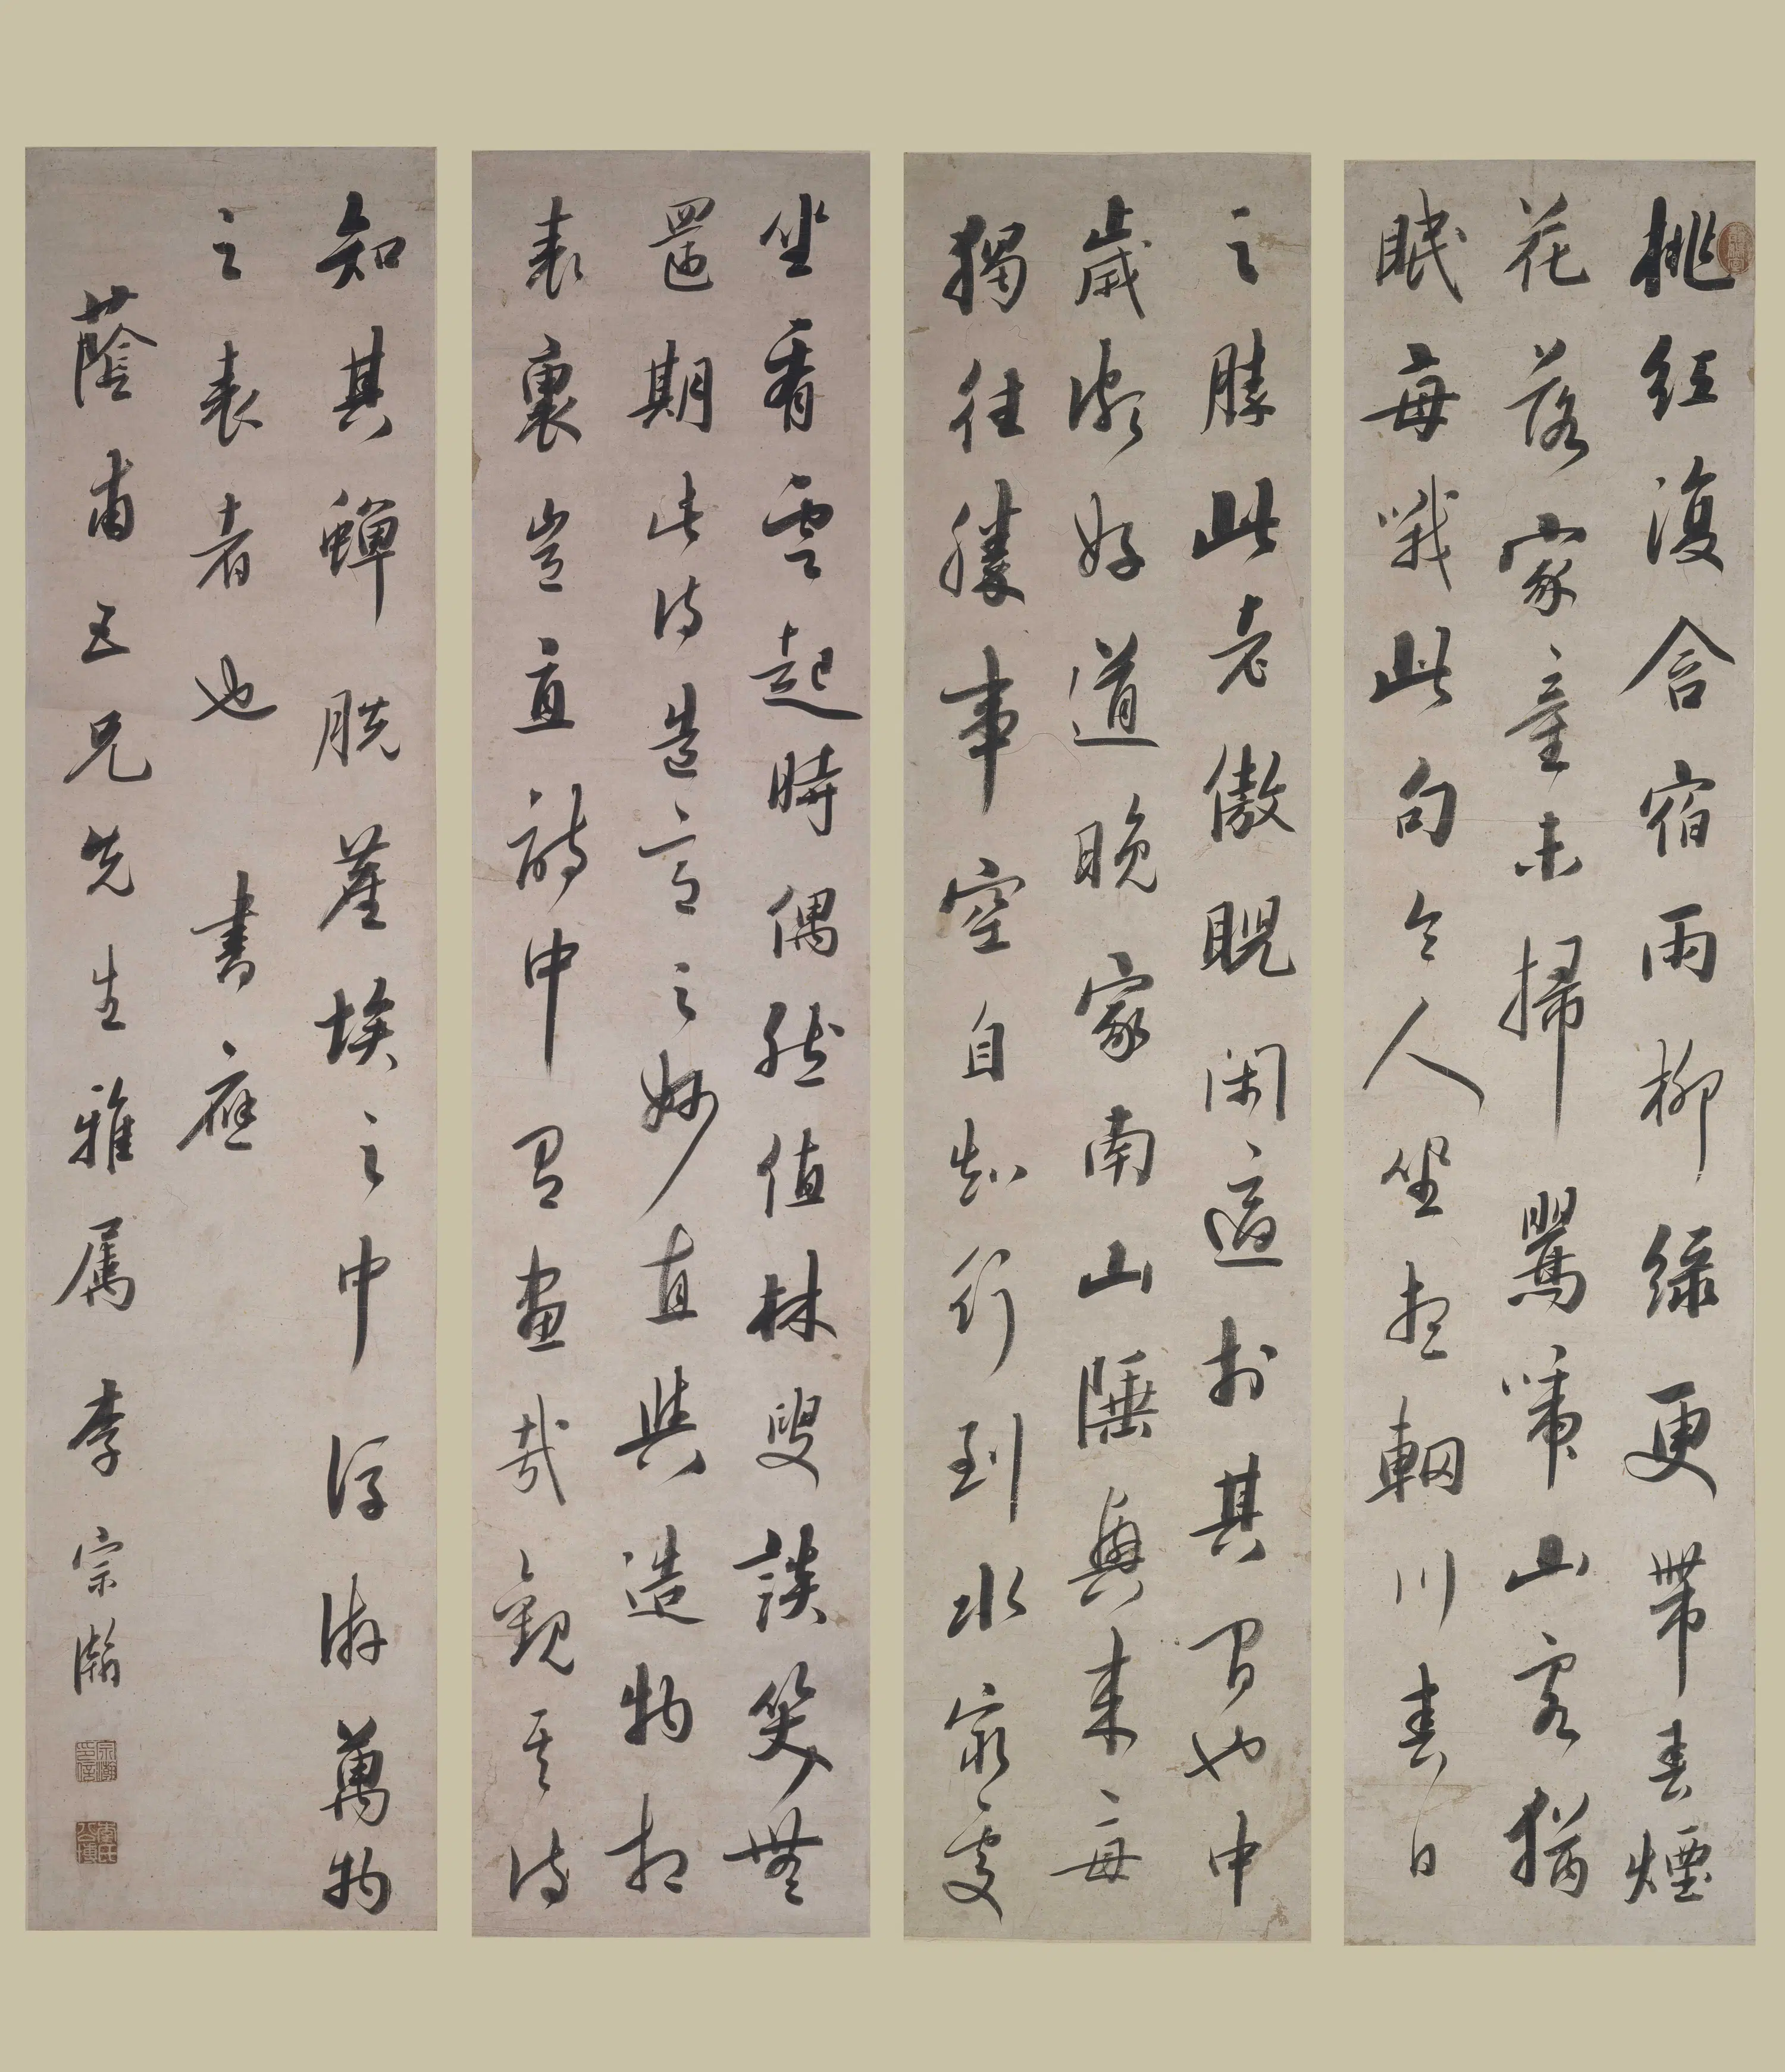 桃紅復含宿雨柳綠更帶春煙
花落家童未掃鶯啼山客猶
眠每哦此句令人坐想輞川春日
之勝此老傲睨閑適於其間也中
歲頗好道晚家南山陲興來每
獨往勝事空自知行到水窮處
坐看雲起時偶然值林叟談笑無
還期此詩造意之妙直與造物相
表裏豈直詩中有畫哉觀其詩
知其蟬脫塵埃之中浮游萬物
之表者也 書應
蔭甫五兄先生雅屬 李宗瀚
宗瀚印信
李氏公博